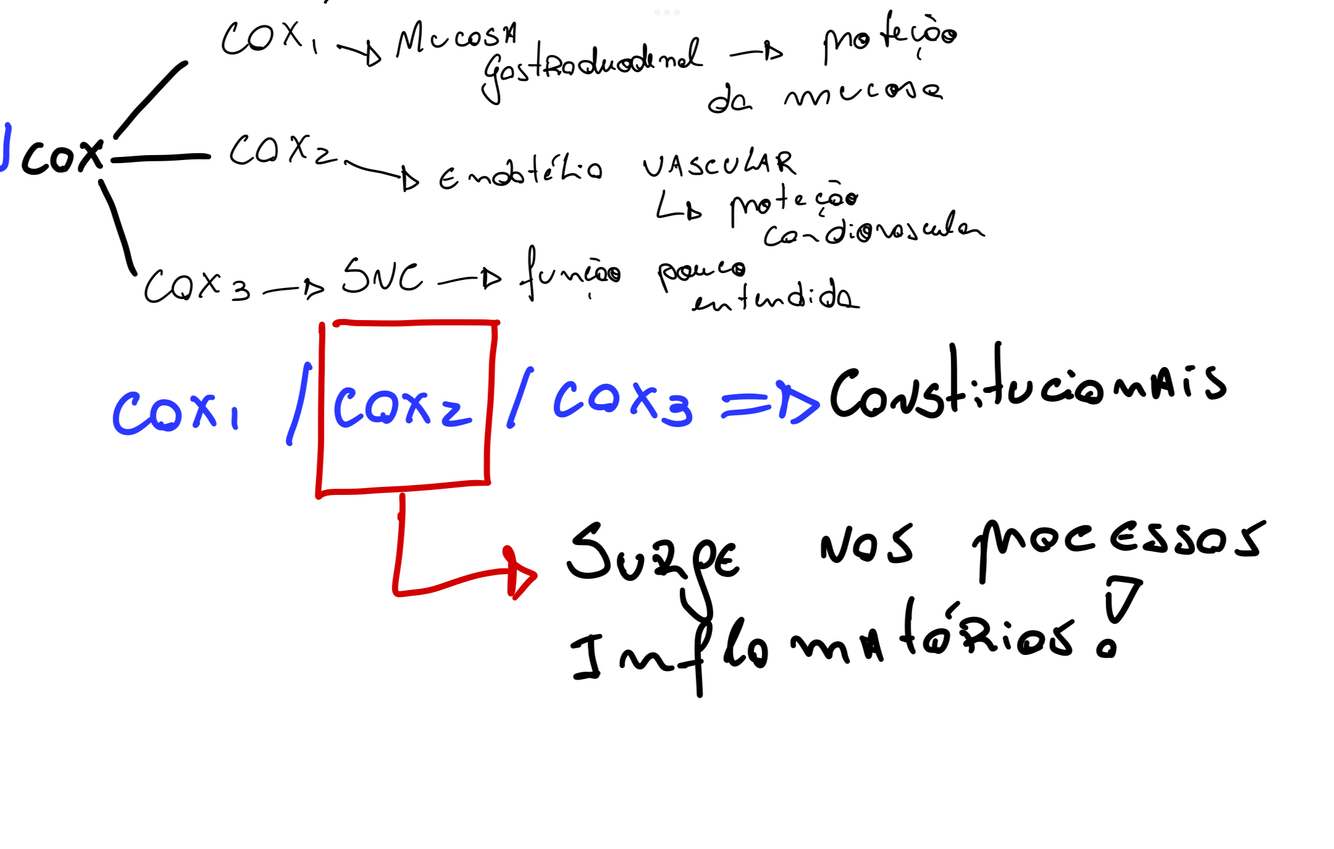 COX1 → MucosA
gastRoduodenal → proteção
da mucosa
COX
COX2 → Endotélio VASCULAR
↳ proteção
cardiovascular
COX3 → SNC → função pouco
entendida
COX1 / COX2 / COX3 ⇒ ConstitucionAis
SuRge nos processos
InflamAtóRios!